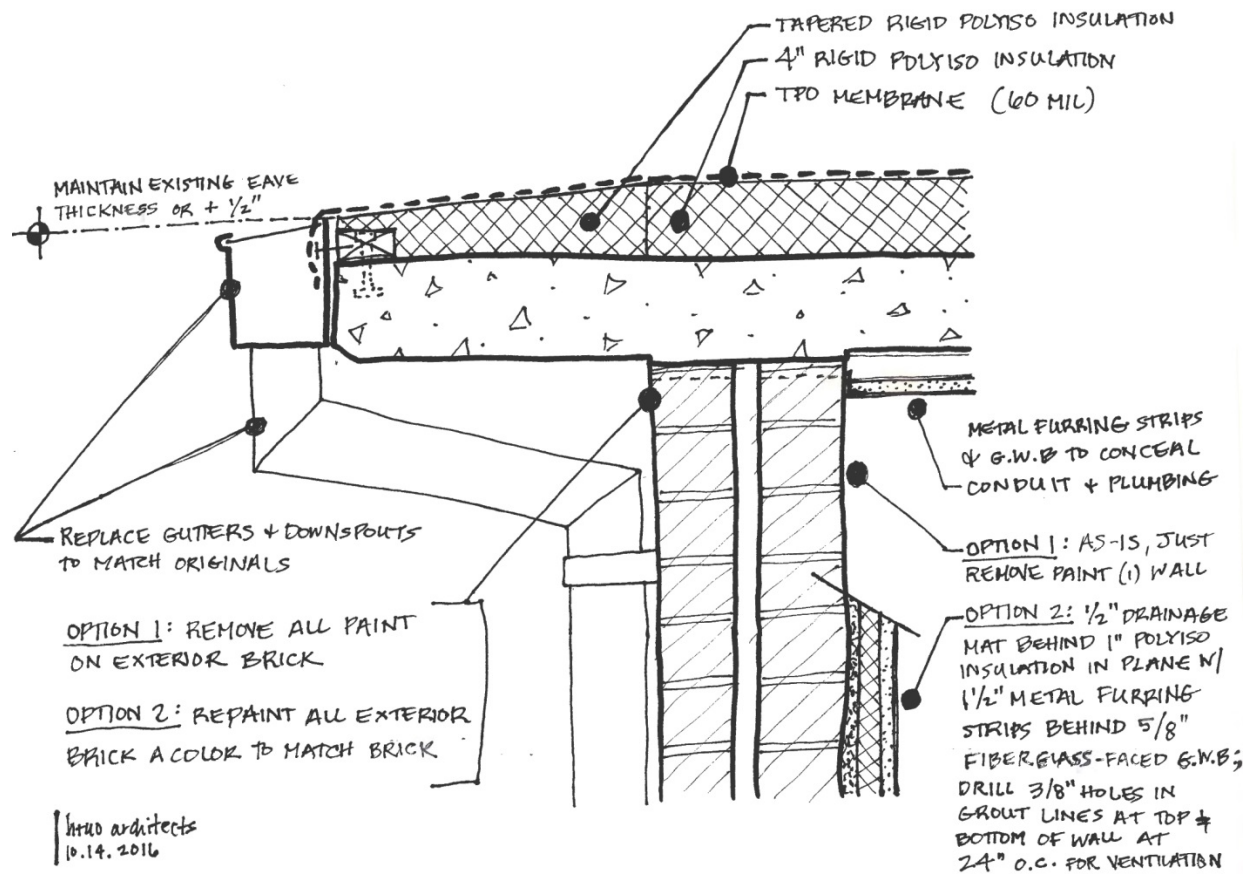 TAPERED RIGID POLYISO INSULATION
4" RIGID POLYISO INSULATION
TPO MEMBRANE (60 MIL)
MAINTAIN EXISTING EAVE
THICKNESS OR + 1/2"
METAL FURRING STRIPS
& G.W.B TO CONCEAL
CONDUIT + PLUMBING
REPLACE GUTTERS + DOWNSPOUTS
TO MATCH ORIGINALS
OPTION 1: AS-IS, JUST
REMOVE PAINT (1) WALL
OPTION 1: REMOVE ALL PAINT
ON EXTERIOR BRICK
OPTION 2: REPAINT ALL EXTERIOR
BRICK A COLOR TO MATCH BRICK
OPTION 2: 1/2" DRAINAGE
MAT BEHIND 1" POLYISO
INSULATION IN PLANE W/
1 1/2" METAL FURRING
STRIPS BEHIND 5/8"
FIBERGLASS-FACED G.W.B;
DRILL 3/8" HOLES IN
GROUT LINES AT TOP &
BOTTOM OF WALL AT
24" O.C. FOR VENTILATION
architects
10.14.2016